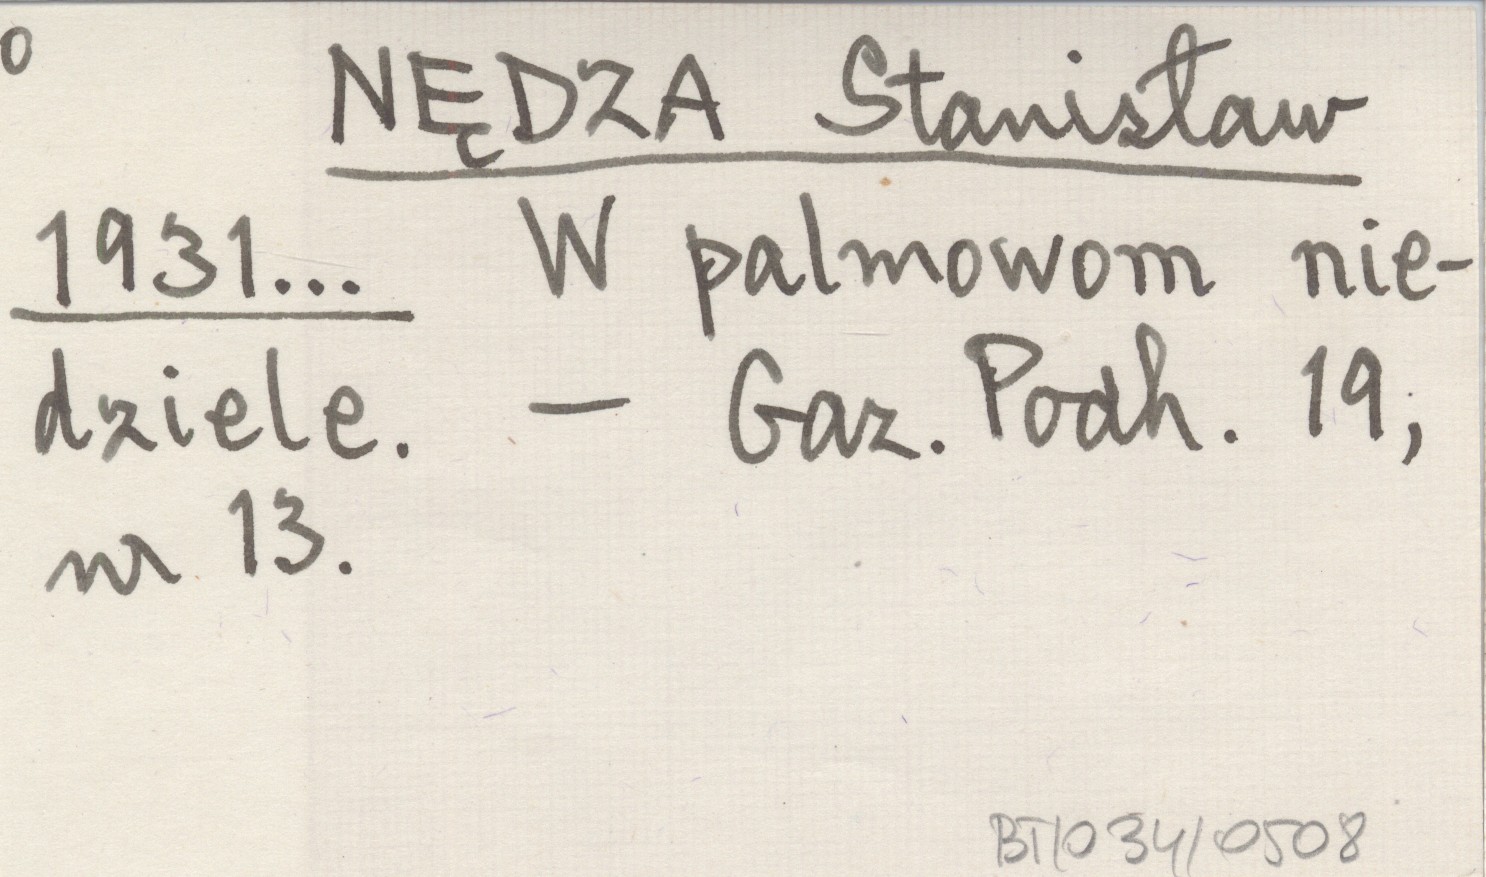 o
NĘDZA Stanisław
1931... W palmowom nie-
dziele. — Gaz. Podh. 19,
nr 13.
BT/034/0508